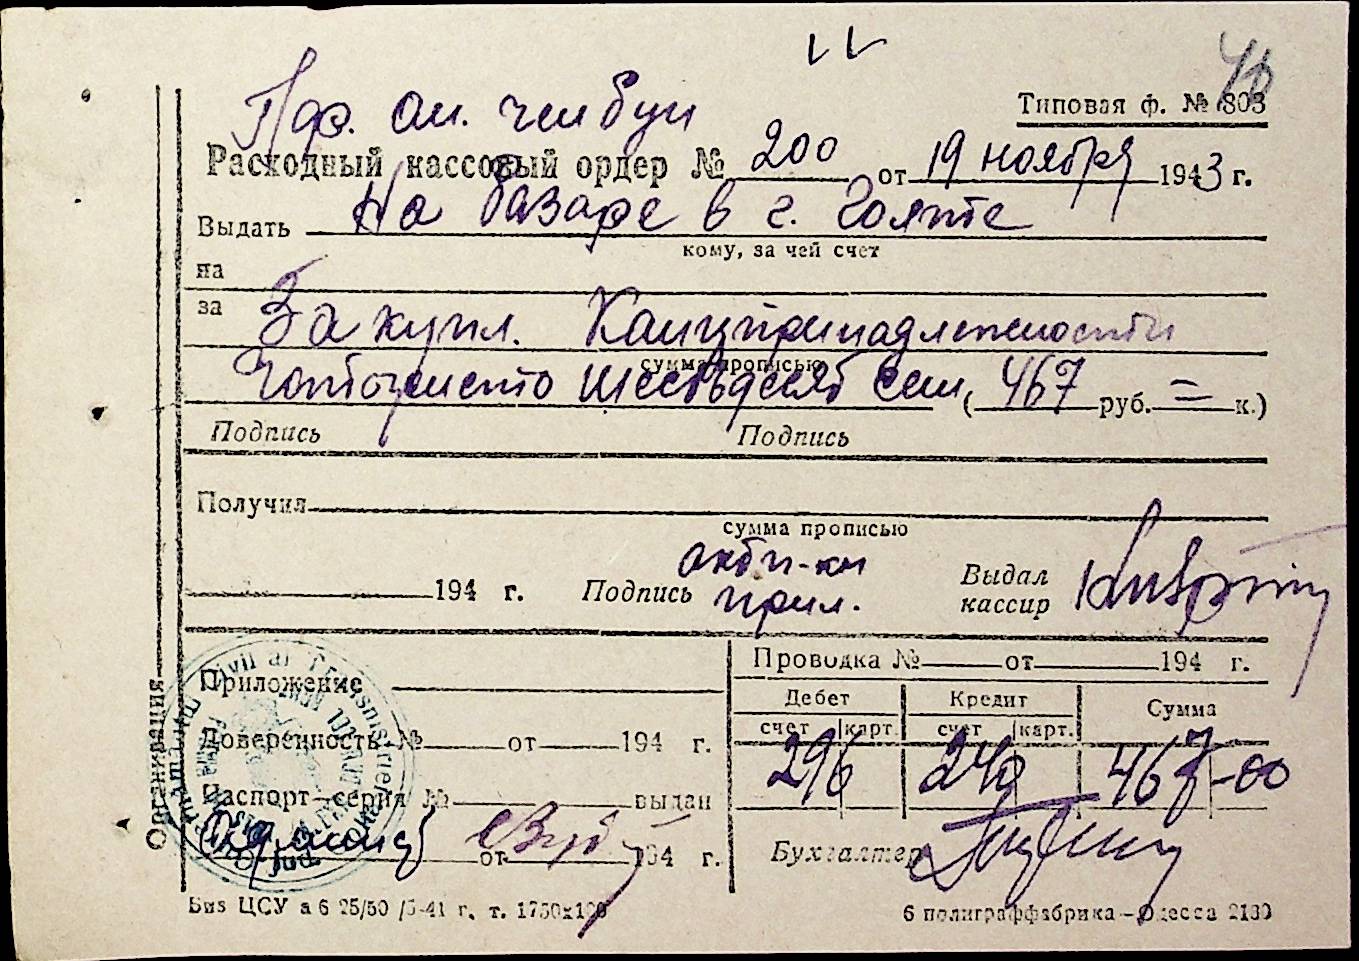 40
Типовая ф. № 803
Расходный кассовый ордер № 200 от 19 ноября 1943 г.
Выдать На базаре в г. Голте
кому, за чей счет
на
за Закупл. Канцпринадлежности
сумма прописью
Четыреста шестьдесят семь (467 руб. = к.)
Подпись Подпись
Получил
сумма прописью
194 г. Подпись прил. Выдал кассир
Организация
Приложение
Проводка № от 194 г.
Дебет Кредит Сумма
счет карт. счет карт.
Доверенность № от 194 г.
296 240 467-00
Паспорт—серия № выдан
от 194 г. Бухгалтер
Биз ЦСУ а 6 25/50 /5-41 г. т. 1750х100
6 полиграффабрика—Одесса 2130